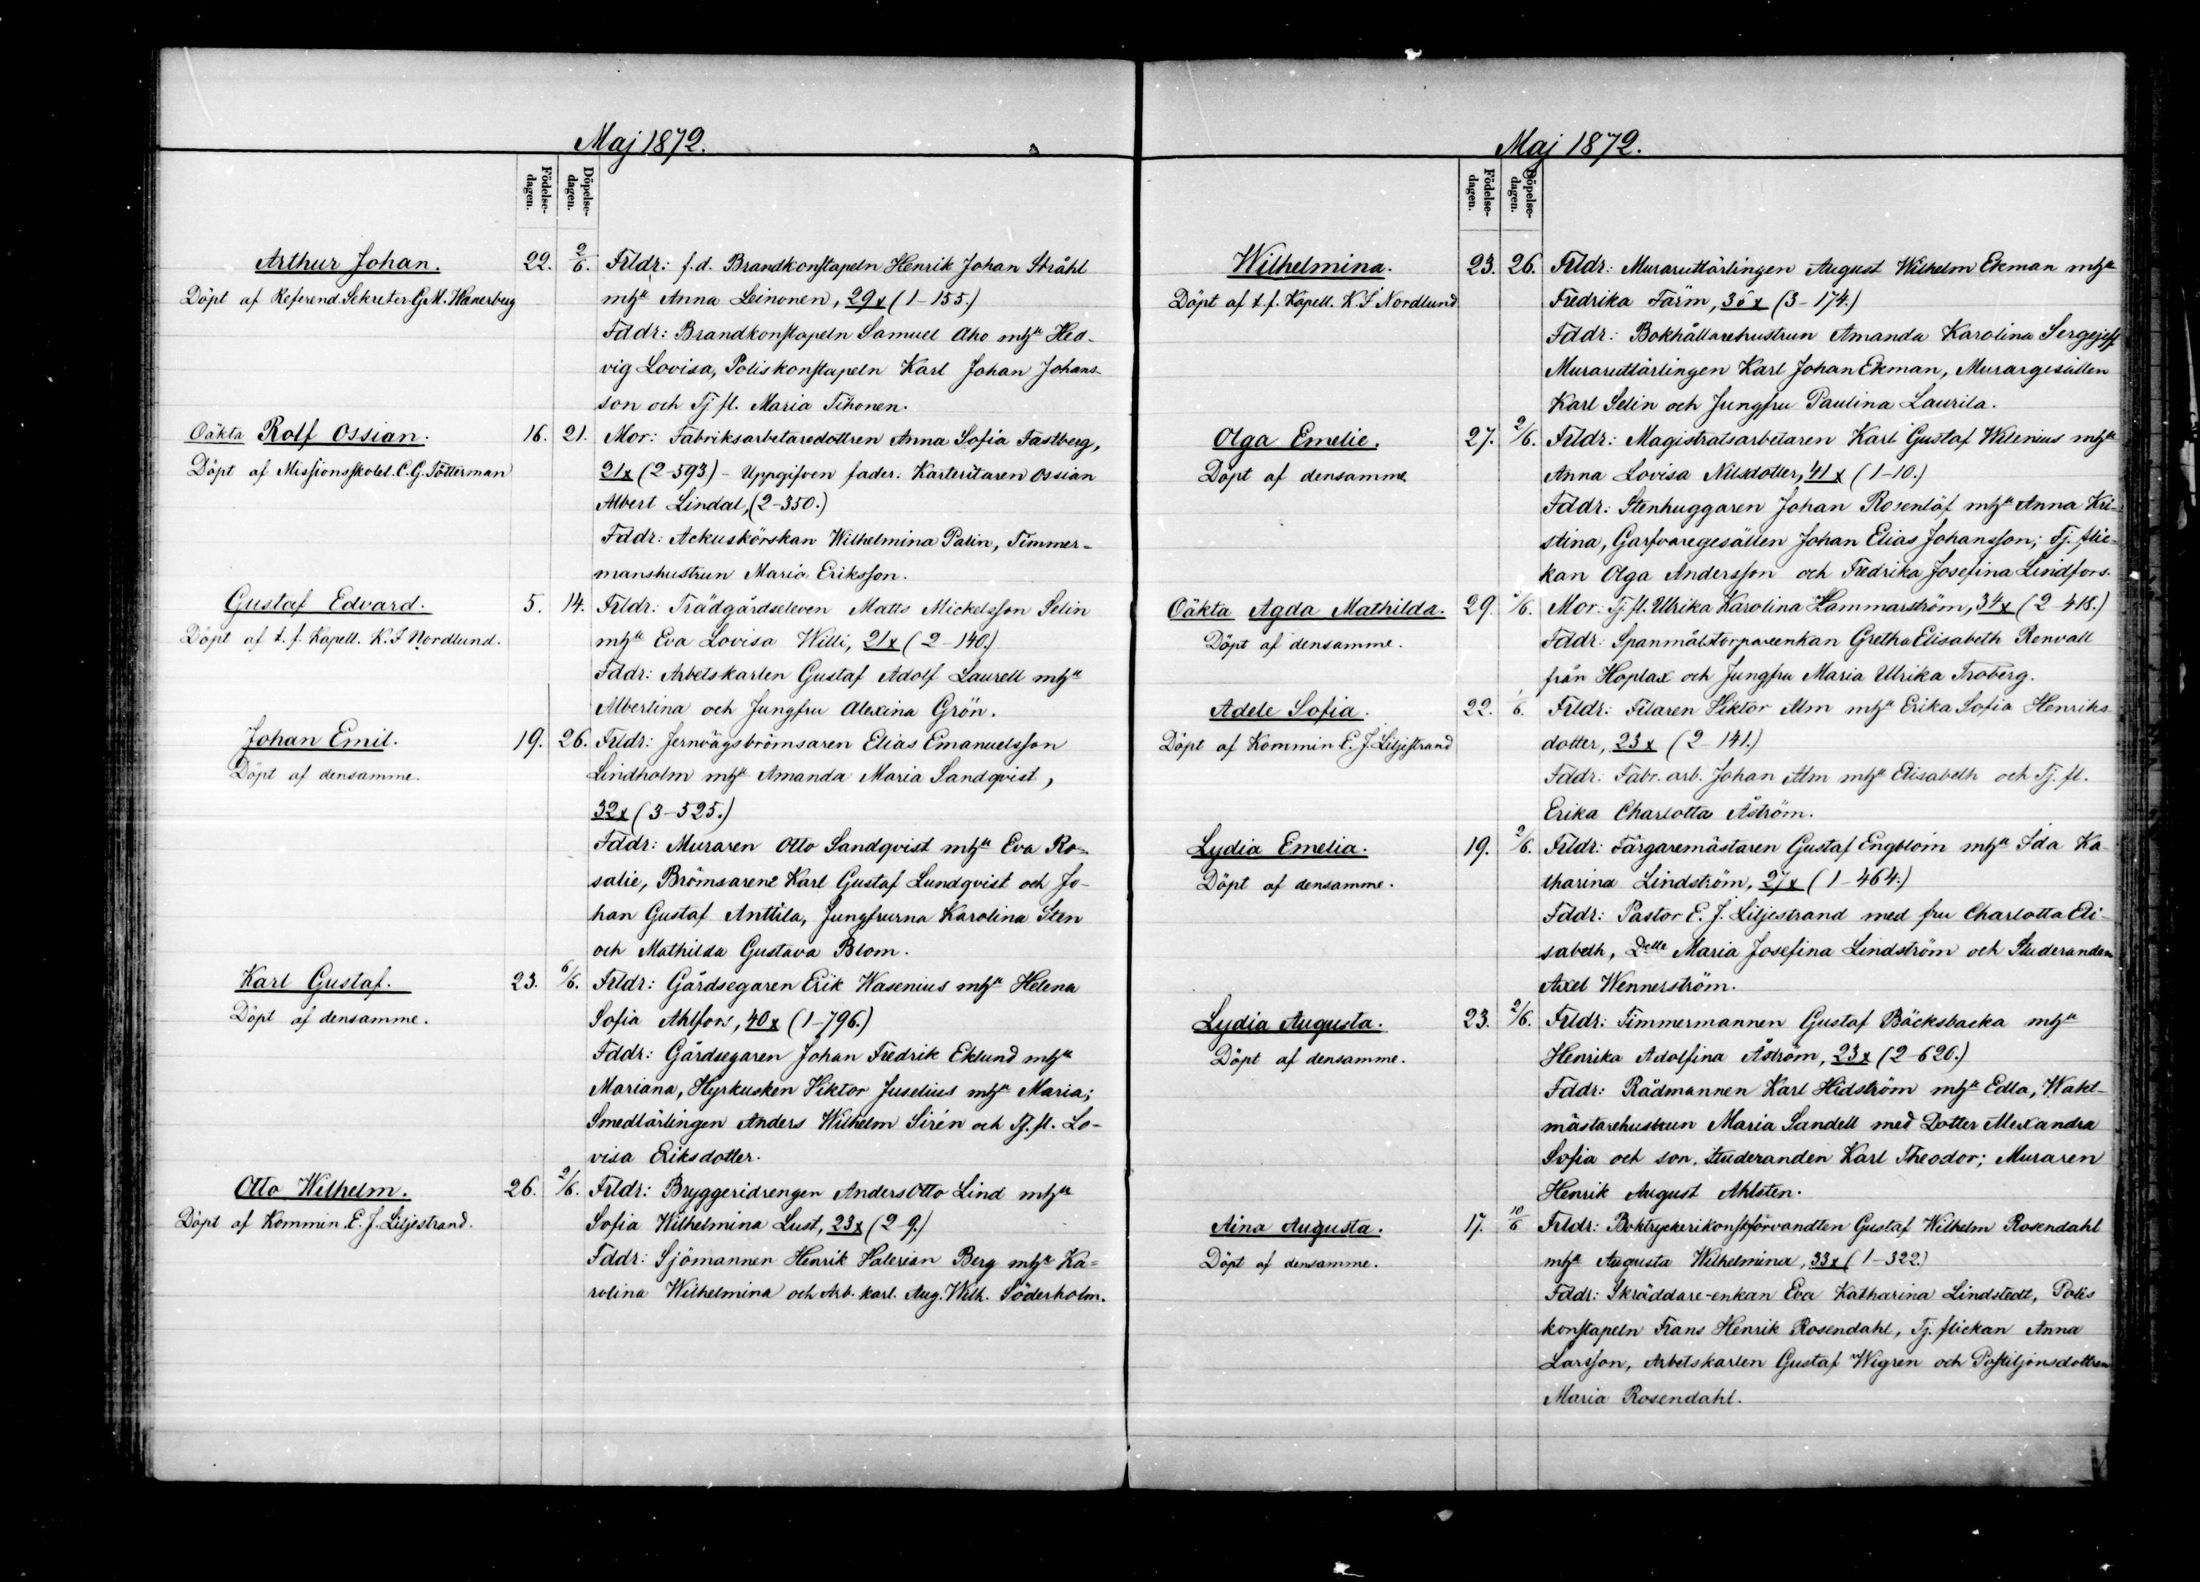 Maj 1872.
Födelse-
dagen.
Döpelse-
dagen.
Arthur Johan. 22. 2/6. Frldr: f.d. Brandkonstapeln Henrik Johan Stråhl
Döpt af Referend. Sekreter G.M. mhu Anna Leinonen, 29 x (1-155.)
Fddr: Brandkonstapeln Samuel Aho mhu Hed-
vig Lovisa, Poliskonstapeln Karl Johan Johans-
son och Tj fl. Maria Tihonen.
Oäkta Rolf Ossian. 16. 21. Mor: Fabriksarbetaredottren Anna Sofia Fastberg,
Döpt af Missionsskolel. C.G. Tötterman 21x (2-593) - Uppgifven fader: Kartritaren Ossian
Albert Lindal, (2-350.)
Fddr: Ackuskörskan Wilhelmina Palin, Timmer-
manshustrun Maria Eriksson.
Gustaf Edvard. 5. 14. Frldr: Trädgårdseleven Matts Mickelsson Selin
Döpt af t. f. Kapell. K. F Nordlund. mhu Eva Lovisa Willi, 21x (2-140.)
Fddr: Arbetskarlen Gustaf Adolf Laurell mhu
Albertina och Jungfru Alexina Grön.
Johan Emil. 19. 26. Frldr: Jernvägsbrömsaren Elias Emanuelsson
Döpt af densamme. Lindholm mhu Amanda Maria Sandqvist,
32x (3-525.)
Fddr: Muraren Otto Sandqvist mhu Eva Ro-
salie, Brömsarene Karl Gustaf Lundqvist och Jo-
han Gustaf Anttila, Jungfrurna Karolina Sten
och Mathilda Gustava Blom.
Karl Gustaf. 23. 6/6. Frldr: Gårdsegaren Erik Wasenius mhu Helena
Döpt af densamme. Sofia Ahlfors, 40x (1-796.)
Fddr: Gårdsegaren Johan Fredrik Eklund mhu
Mariana, Hyrkusken Viktor Juselius mhu Maria;
Smedlärlingen Anders Wilhelm Sirén och Tj. fl. Lo-
visa Eriksdotter.
Otto Wilhelm. 26. 2/6. Frldr: Bryggeridrengen Anders Otto Lind mhu
Döpt af Kommin. E. J. Liljestrand. Sofia Wilhelmina Lust, 23x (2-9.)
Fddr: Sjömannen Henrik Valerian Berg mhu Ka-
rolina Wilhelmina och Arb. karl. Aug. Wilh. Söderholm.
Maj 1872.
Födelse-
dagen.
Döpelse-
dagen.
Wilhelmina. 23. 26. Frldr: Murarutlärlingen August Wilhelm Ekman mhu
Döpt af t. f. Kapell. K. F Nordlund Fredrika Färm, 35x (3-174.)
Fddr: Bokhållarehustrun Amanda Karolina
Murarutlärlingen Karl Johan Ekman, Murargesällen
Karl Selin och Jungfru Paulina Laurila.
Olga Emelie. 27. 2/6. Frldr: Magistratsarbetaren Karl Gustaf Wilenius mhu
Döpt af densamme Anna Lovisa Nilsdotter, 41x (1-10.)
Fddr: Stenhuggaren Johan Rosenlöf mhu Anna Kri-
stina, Garfvaregesällen Johan Elias Johansson; Tj. flic-
kan Olga Andersson och Fredrika Josefina Lindfors.
Oäkta Agda Mathilda. 29. /6. Mor: Tj. fl. Ulrika Karolina Hammarström, 34x (2-418.)
Döpt af densamme. Fddr: Spanmålstorpareenkan Gretha Elisabeth Renvall
från Hoplax och Jungfru Maria Ulrika Troberg.
Adele Sofia. 22. 1/6. Frldr: Filaren Viktor Alm mhu Erika Sofia Henriks
Döpt af Kommin E. J. Liljestrand dotter, 23x (2-141.)
Fddr: Fabr. arb. Johan Alm mhu Elisabeth och Tj. fl.
Erika Charlotta Åström.
Lydia Emelia. 19. 2/6. Frldr: Färgaremästaren Gustaf Engblom mhu Ida Ka-
Döpt af densamme. tharina Lindström, 27x (1-464.)
Fddr: Pastor E. J. Liljestrand med fru Charlotta Eli-
sabeth, Delle Maria Josefina Lindström och Studeranden
Axel Wennerström.
Lydia Augusta. 23. 2/6. Frldr: Timmermannen Gustaf Bäcksbacka mhu
Döpt af densamme. Henrika Adolfina Åström, 23x (2-620.)
Fddr: Rådmannen Karl Hidström mhu Edla, Wakt-
mästarehustrun Maria Sandell med Dotter Alexandra
Sofia och son, Studeranden Karl Theodor; Muraren
Henrik August Ahlsten.
Aina Augusta. 17. 10/6 Frldr: Boktryckerikonstförvandten Gustaf Wilhelm Rosendahl
Döpt af densamme. mhu Augusta Wilhelmina, 33x (1-322.)
Fddr: Skräddare-enkan Eva Katharina Lindstedt, Polis
konstapeln Frans Henrik Rosendahl, Tj. flickan Anna
Larsson, Arbetskarlen Gustaf Wigren och Postiljonsdottren
Maria Rosendahl.